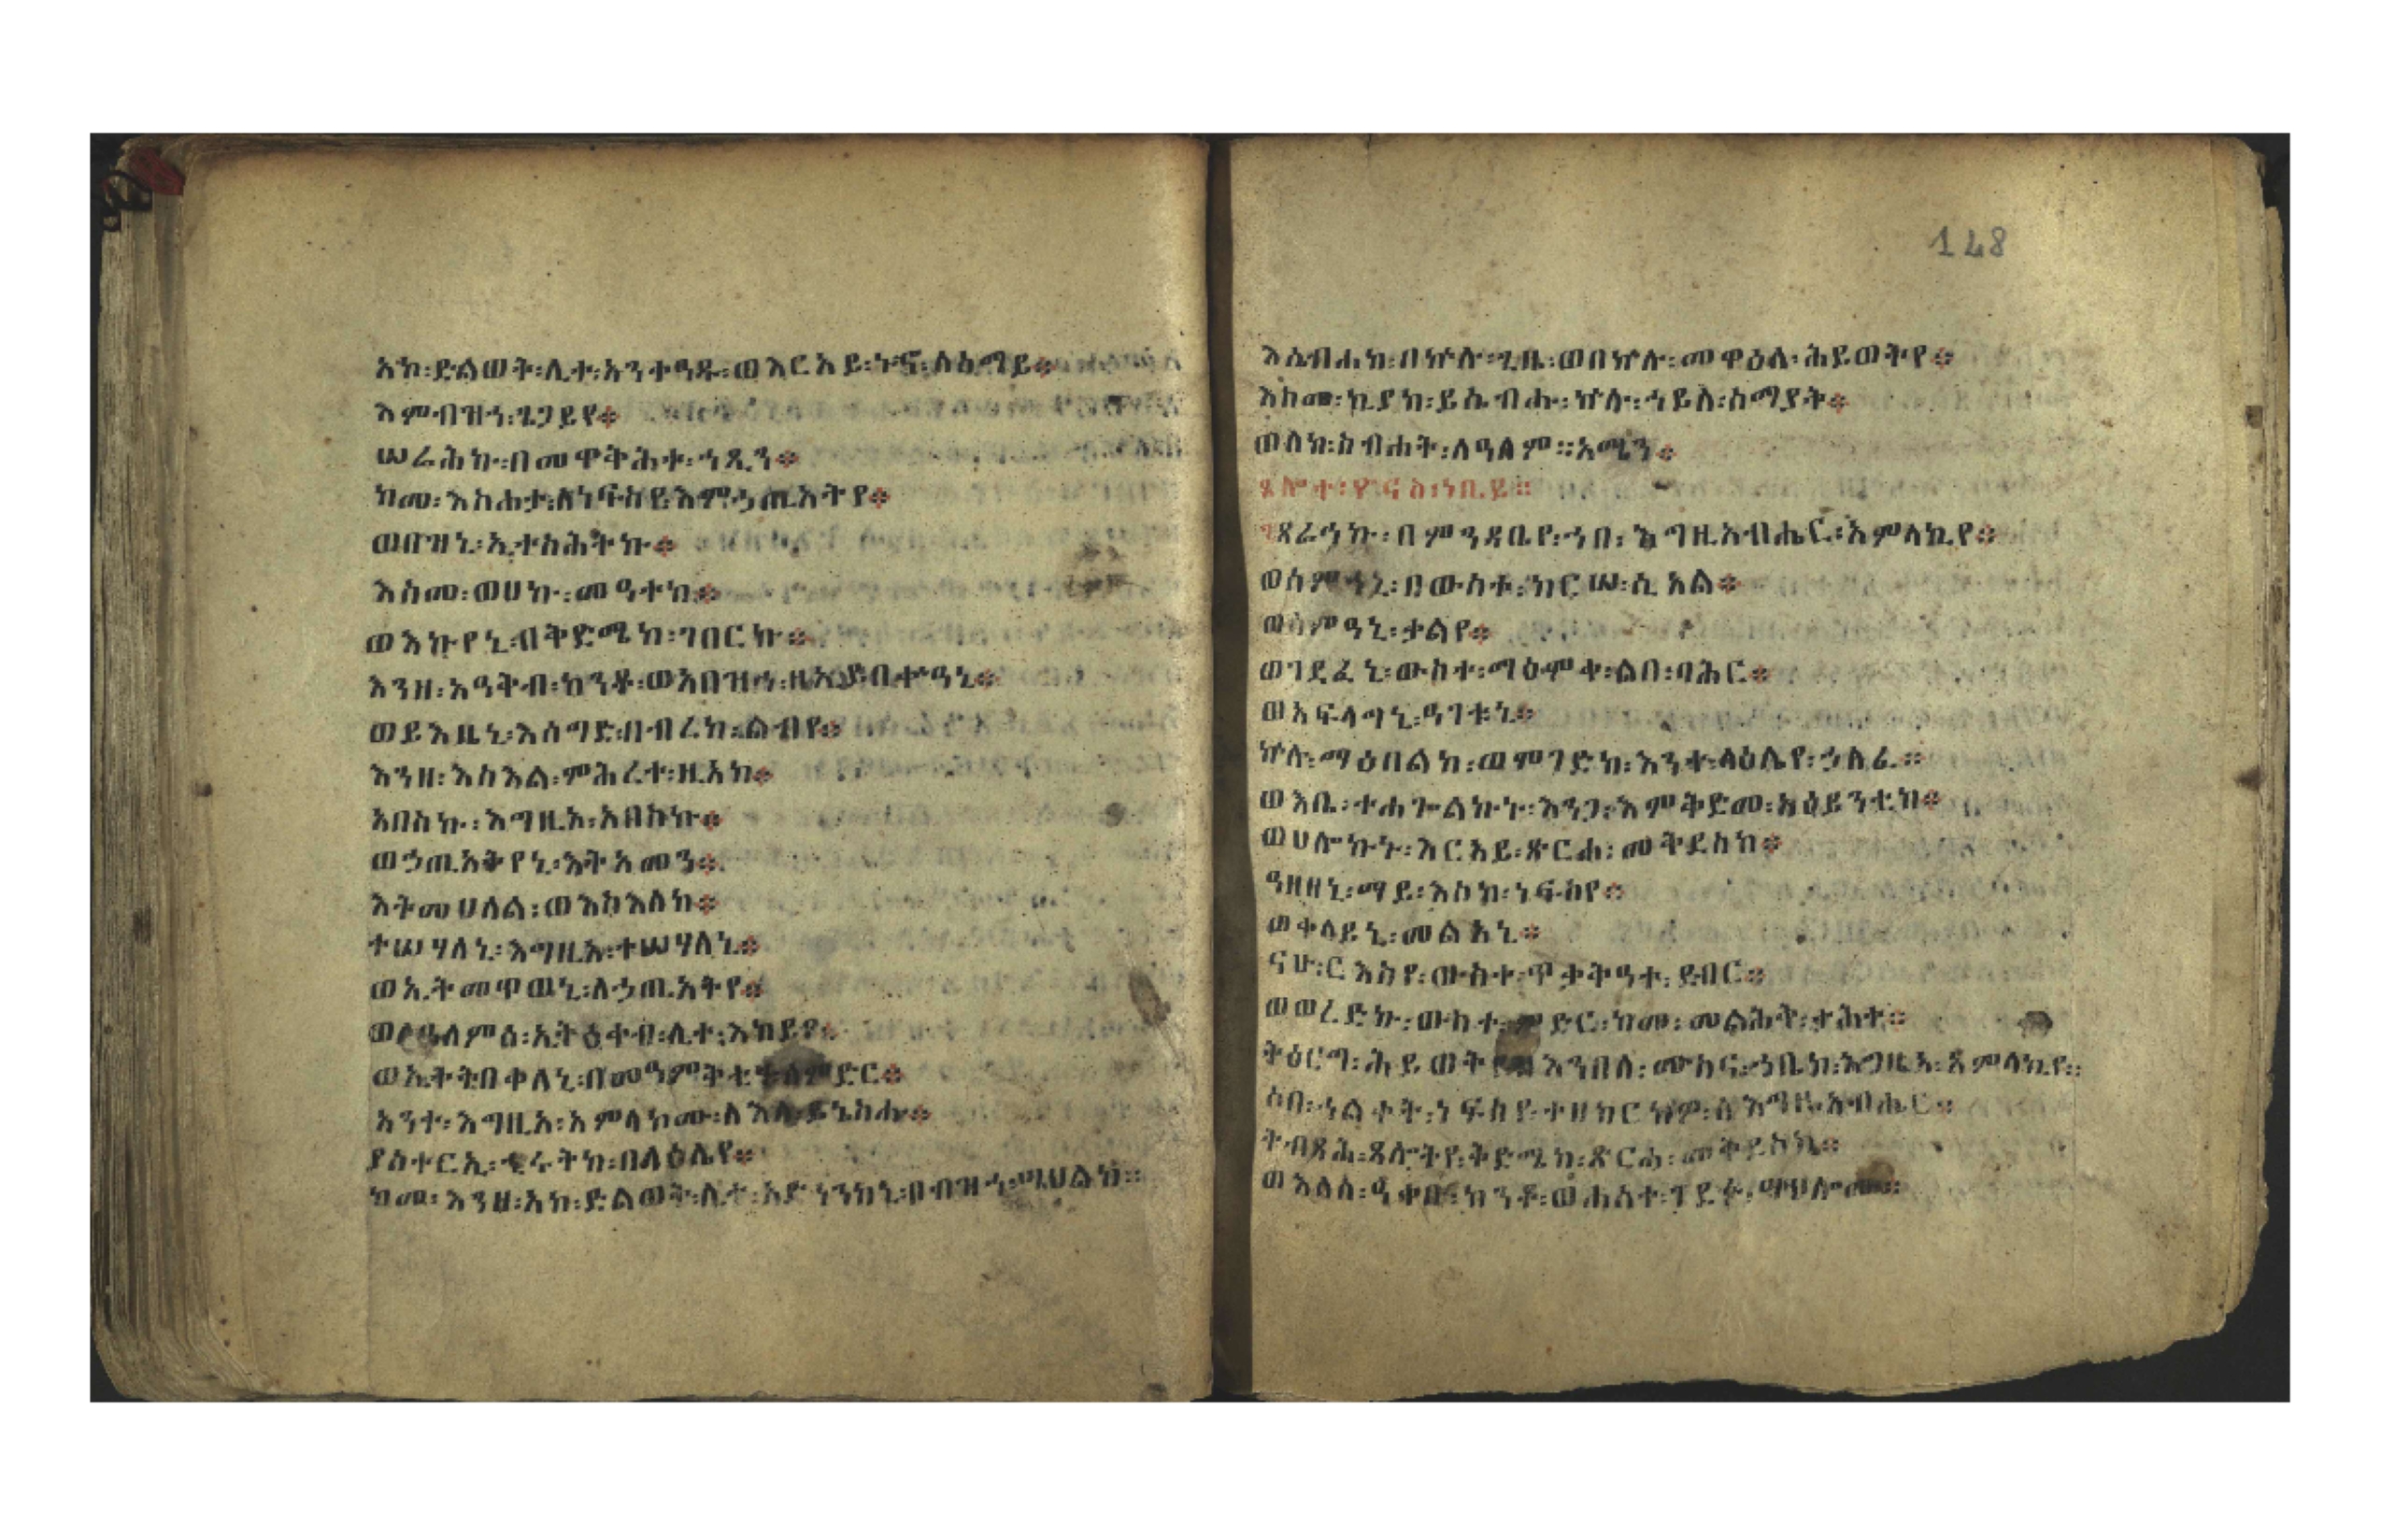 አኮ፡ድልወት፡ሊተ፡አንተዓዱ፡ወእርአይ፡ኑኀ፡ለሰማይ።
እምብዝኀ፡ጌጋይየ።
ሠራሕኩ፡በመዋትሕተ፡ኀጺን።
ከመ፡እስሐታ፡ለነፍስየ፡እምኃጢአትየ።
ወበዝኒ፡ኢተስሕትኩ።
እስመ፡ወሀኩ፡መዓተከ።
ወእኩየኒ፡ብቅድሜከ፡ገበርኩ።
እንዘ፡አዓትብ፡ከንቶ፡ወአበዝኅ፡ዘአይበቍዓኒ።
ወይእዜኒ፡እሰግድ፡በብረከ፡ልብየ።
እንዘ፡እስእል፡ምሕረተ፡ዚአከ።
አበስኩ፡እግዚኦ፡አበስኩ።
ወኃጢአትየኒ፡አትአመን።
እትመሀለል፡ወእስእለከ።
ተሠሃለኒ፡እግዚኦ፡ተሠሃለኒ።
ወኢትመጥወኒ፡ለኃጢአትየ።
ወለዓለምሰ፡ኢትዕቀብ፡ሊተ፡እከይየ።
ወኢትትበቀለኒ፡በመዓምቅቲሃ፡ለምድር።
አንተ፡እግዚኦ፡አምላከሙ፡ለእለ፡ይኔስሑ።
ያስተርኢ፡ኂሩትከ፡በላዕሌየ።
ከመ፡እንዘ፡አኮ፡ድልወት፡ሊተ፡አድኅንከኒ፡በብዝኀ፡ሣህልከ።
148
እሴብሐከ፡በኵሉ፡ጊዜ፡ወበኵሉ፡መዋዕለ፡ሕይወትየ።
እስመ፡ኪያከ፡ይሴብሑ፡ኵሉ፡ኀይለ፡ሰማያት።
ወለከ፡ስብሐት፡ለዓለም።አሜን።
ጸሎተ፡ዮናስ፡ነቢይ።
ጸራኅኩ፡በምንዳቤየ፡ኀበ፡እግዚአብሔር፡አምላኪየ።
ወሰምዓኒ፡በውስተ፡ከርሠ፡ሲኦል።
ወሰምዓኒ፡ቃልየ።
ወገደፈኒ፡ውስተ፡ማዕምቀ፡ልበ፡ባሕር።
ወአፍላግኒ፡ዓገቱኒ።
ኵሉ፡ማዕበልከ፡ወምገድከ፡እንተ፡ላዕሌየ፡ኃለፈ።
ወእቤ፡ተሐጐልኩኑ፡እንጋ፡እምቅድመ፡አዕይንቲከ።
ወሀሎኩኑ፡እርአይ፡ጽርሐ፡መቅደስከ።
ዓዘዘኒ፡ማይ፡እስከ፡ነፍስየ።
ወቀላይኒ፡መልአኒ።
ናሁ፡ርእስየ፡ውስተ፡ጥቃቅዓተ፡ደብር።
ወወረድኩ፡ውስተ፡ምድር፡ከመ፡መልሕቅ፡ታሕተ።
ትዕርግ፡ሕይወትየ፡እንበለ፡ሙስና፡ኀቤከ፡እግዚኦ፡አምላኪየ።
ሶበ፡ኀልቀት፡ነፍስየ፡ተዘከርክዎ፡ለእግዚአብሔር።
ትብጻሕ፡ጸሎትየ፡ቅድሜከ፡ጽርሐ፡መቅደስከ።
ወእለሰ፡ዓቀቡ፡ከንቶ፡ወሐሰተ፡ገደፉ፡ሣህሎሙ።